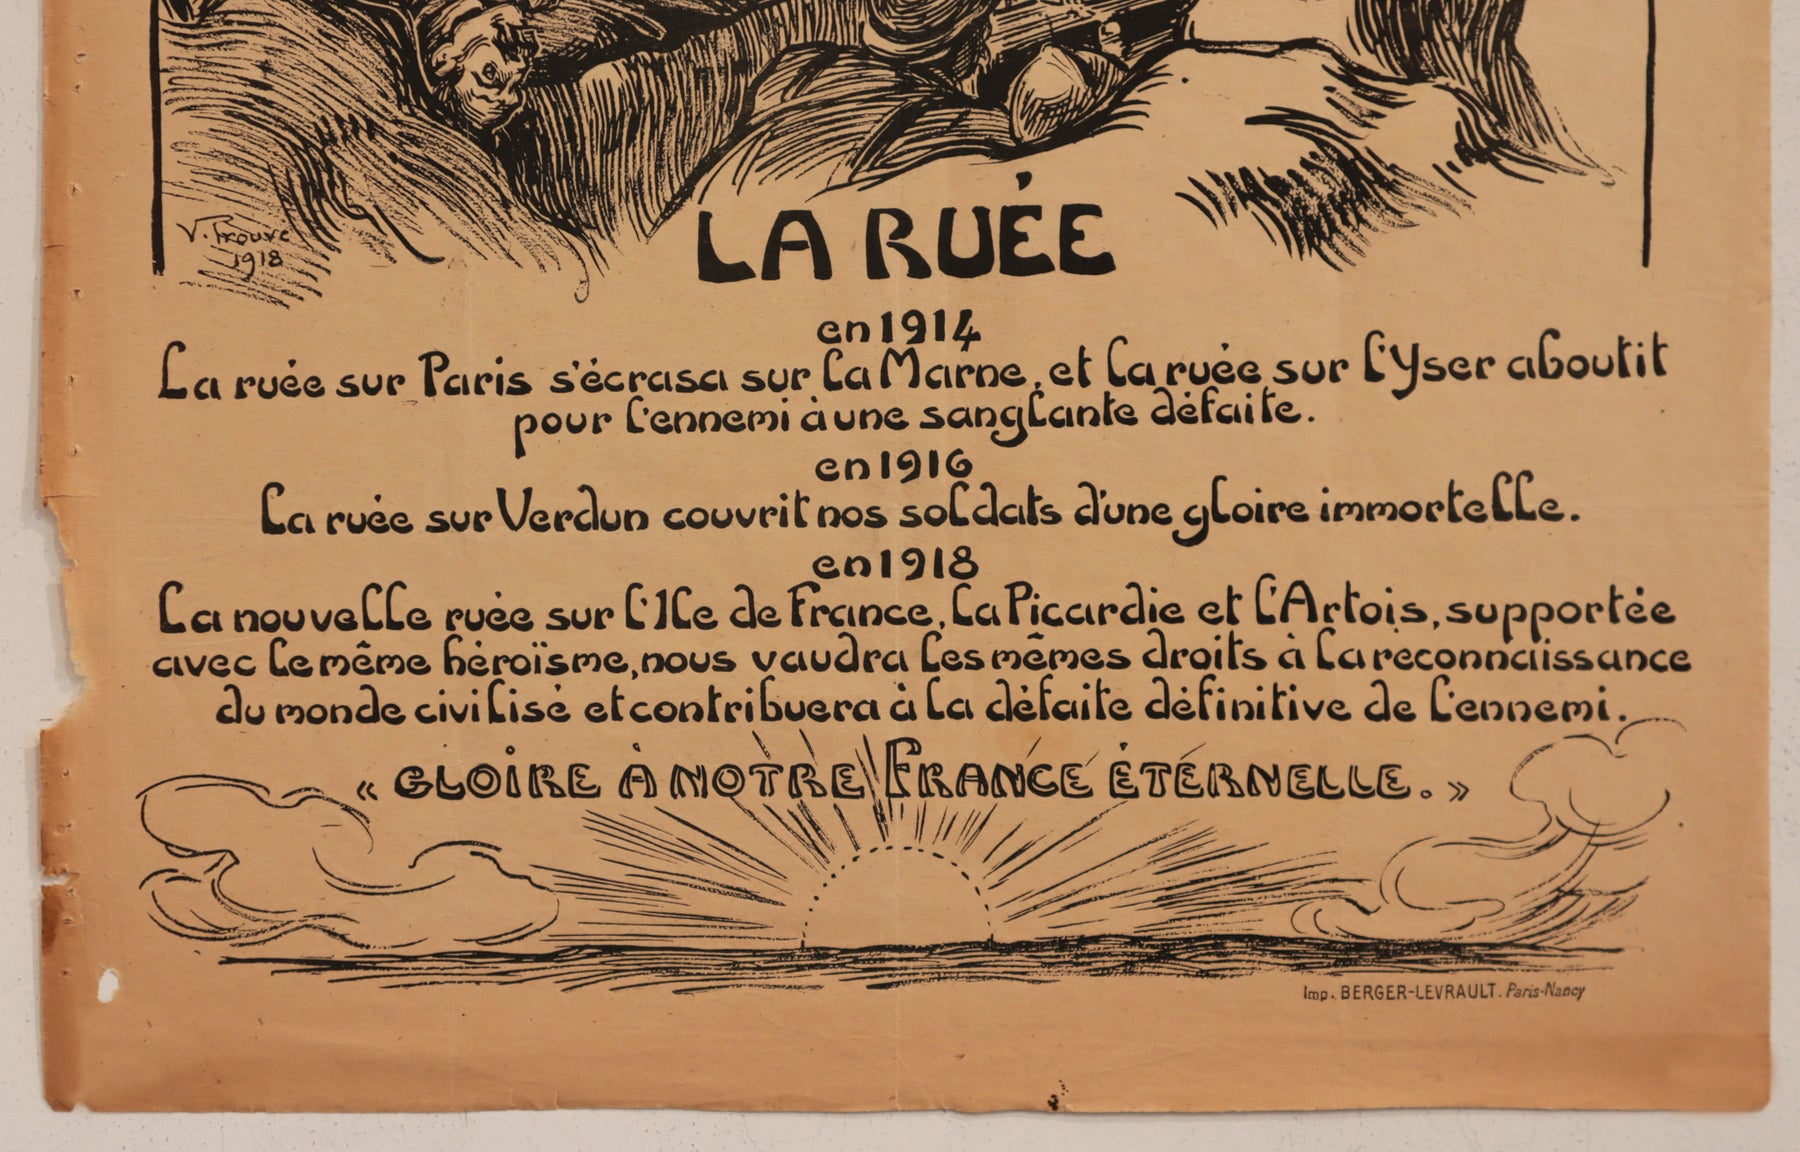 V. Prouvé
1918
LA RUÉE
en 1914
La ruée sur Paris s'écrasa sur la Marne, et la ruée sur l'Yser aboutit
pour l'ennemi à une sanglante défaite.
en 1916
La ruée sur Verdun couvrit nos soldats d'une gloire immortelle.
en 1918
La nouvelle ruée sur l'Ile de France, la Picardie et l'Artois, supportée
avec le même héroïsme, nous vaudra les mêmes droits à la reconnaissance
du monde civilisé et contribuera à la défaite définitive de l'ennemi.
« GLOIRE À NOTRE FRANCE ÉTERNELLE. »
Imp. BERGER-LEVRAULT. Paris-Nancy